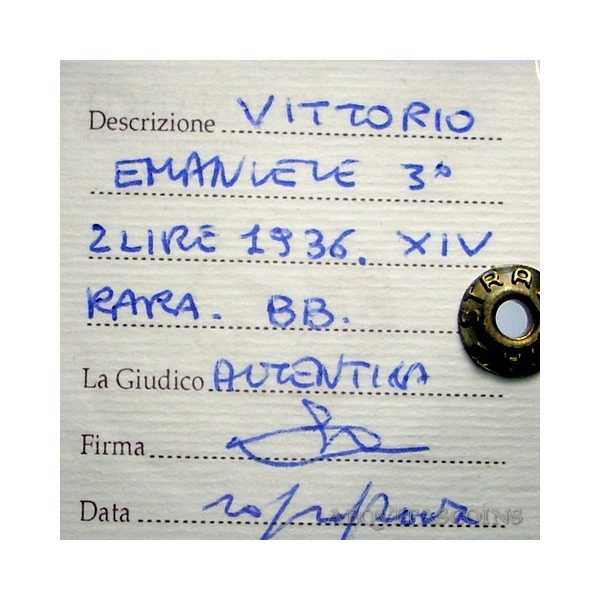 Descrizione VITTORIO
EMANUELE 3°
2 LIRE 1936. XIV
RARA. BB.
La Giudico AUTENTICA
Firma
Data